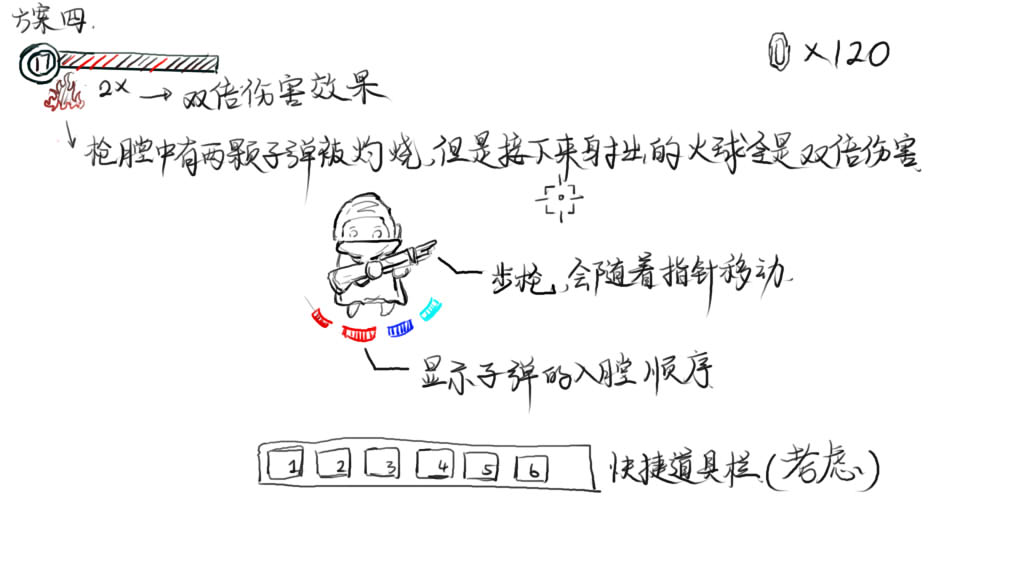 方案四.
17
0 ×120
2× → 双倍伤害效果
枪膛中有两颗子弹被灼烧,但是接下来射出的火球全是双倍伤害
步枪,会随着指针移动.
显示子弹的入膛顺序
1 2 3 4 5 6 快捷道具栏(考虑)